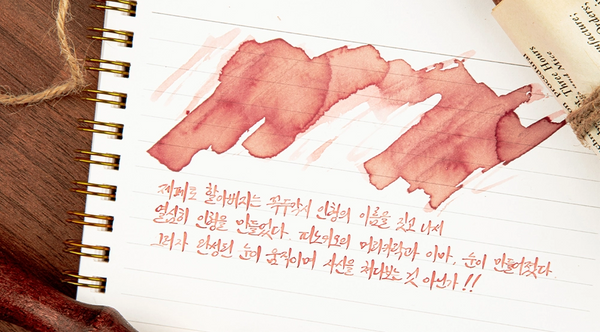 제페토 할아버지는 꼭두각시 인형의 이름을 짓고 나서
열심히 인형을 만들었다. 피노키오의 머리카락과 이마, 눈이 만들어졌다.
그러자 완성된 눈이 움직이며 자신을 쳐다보는 것 아닌가!!
Manufacture;
Orders;
Three Hours
and Mice